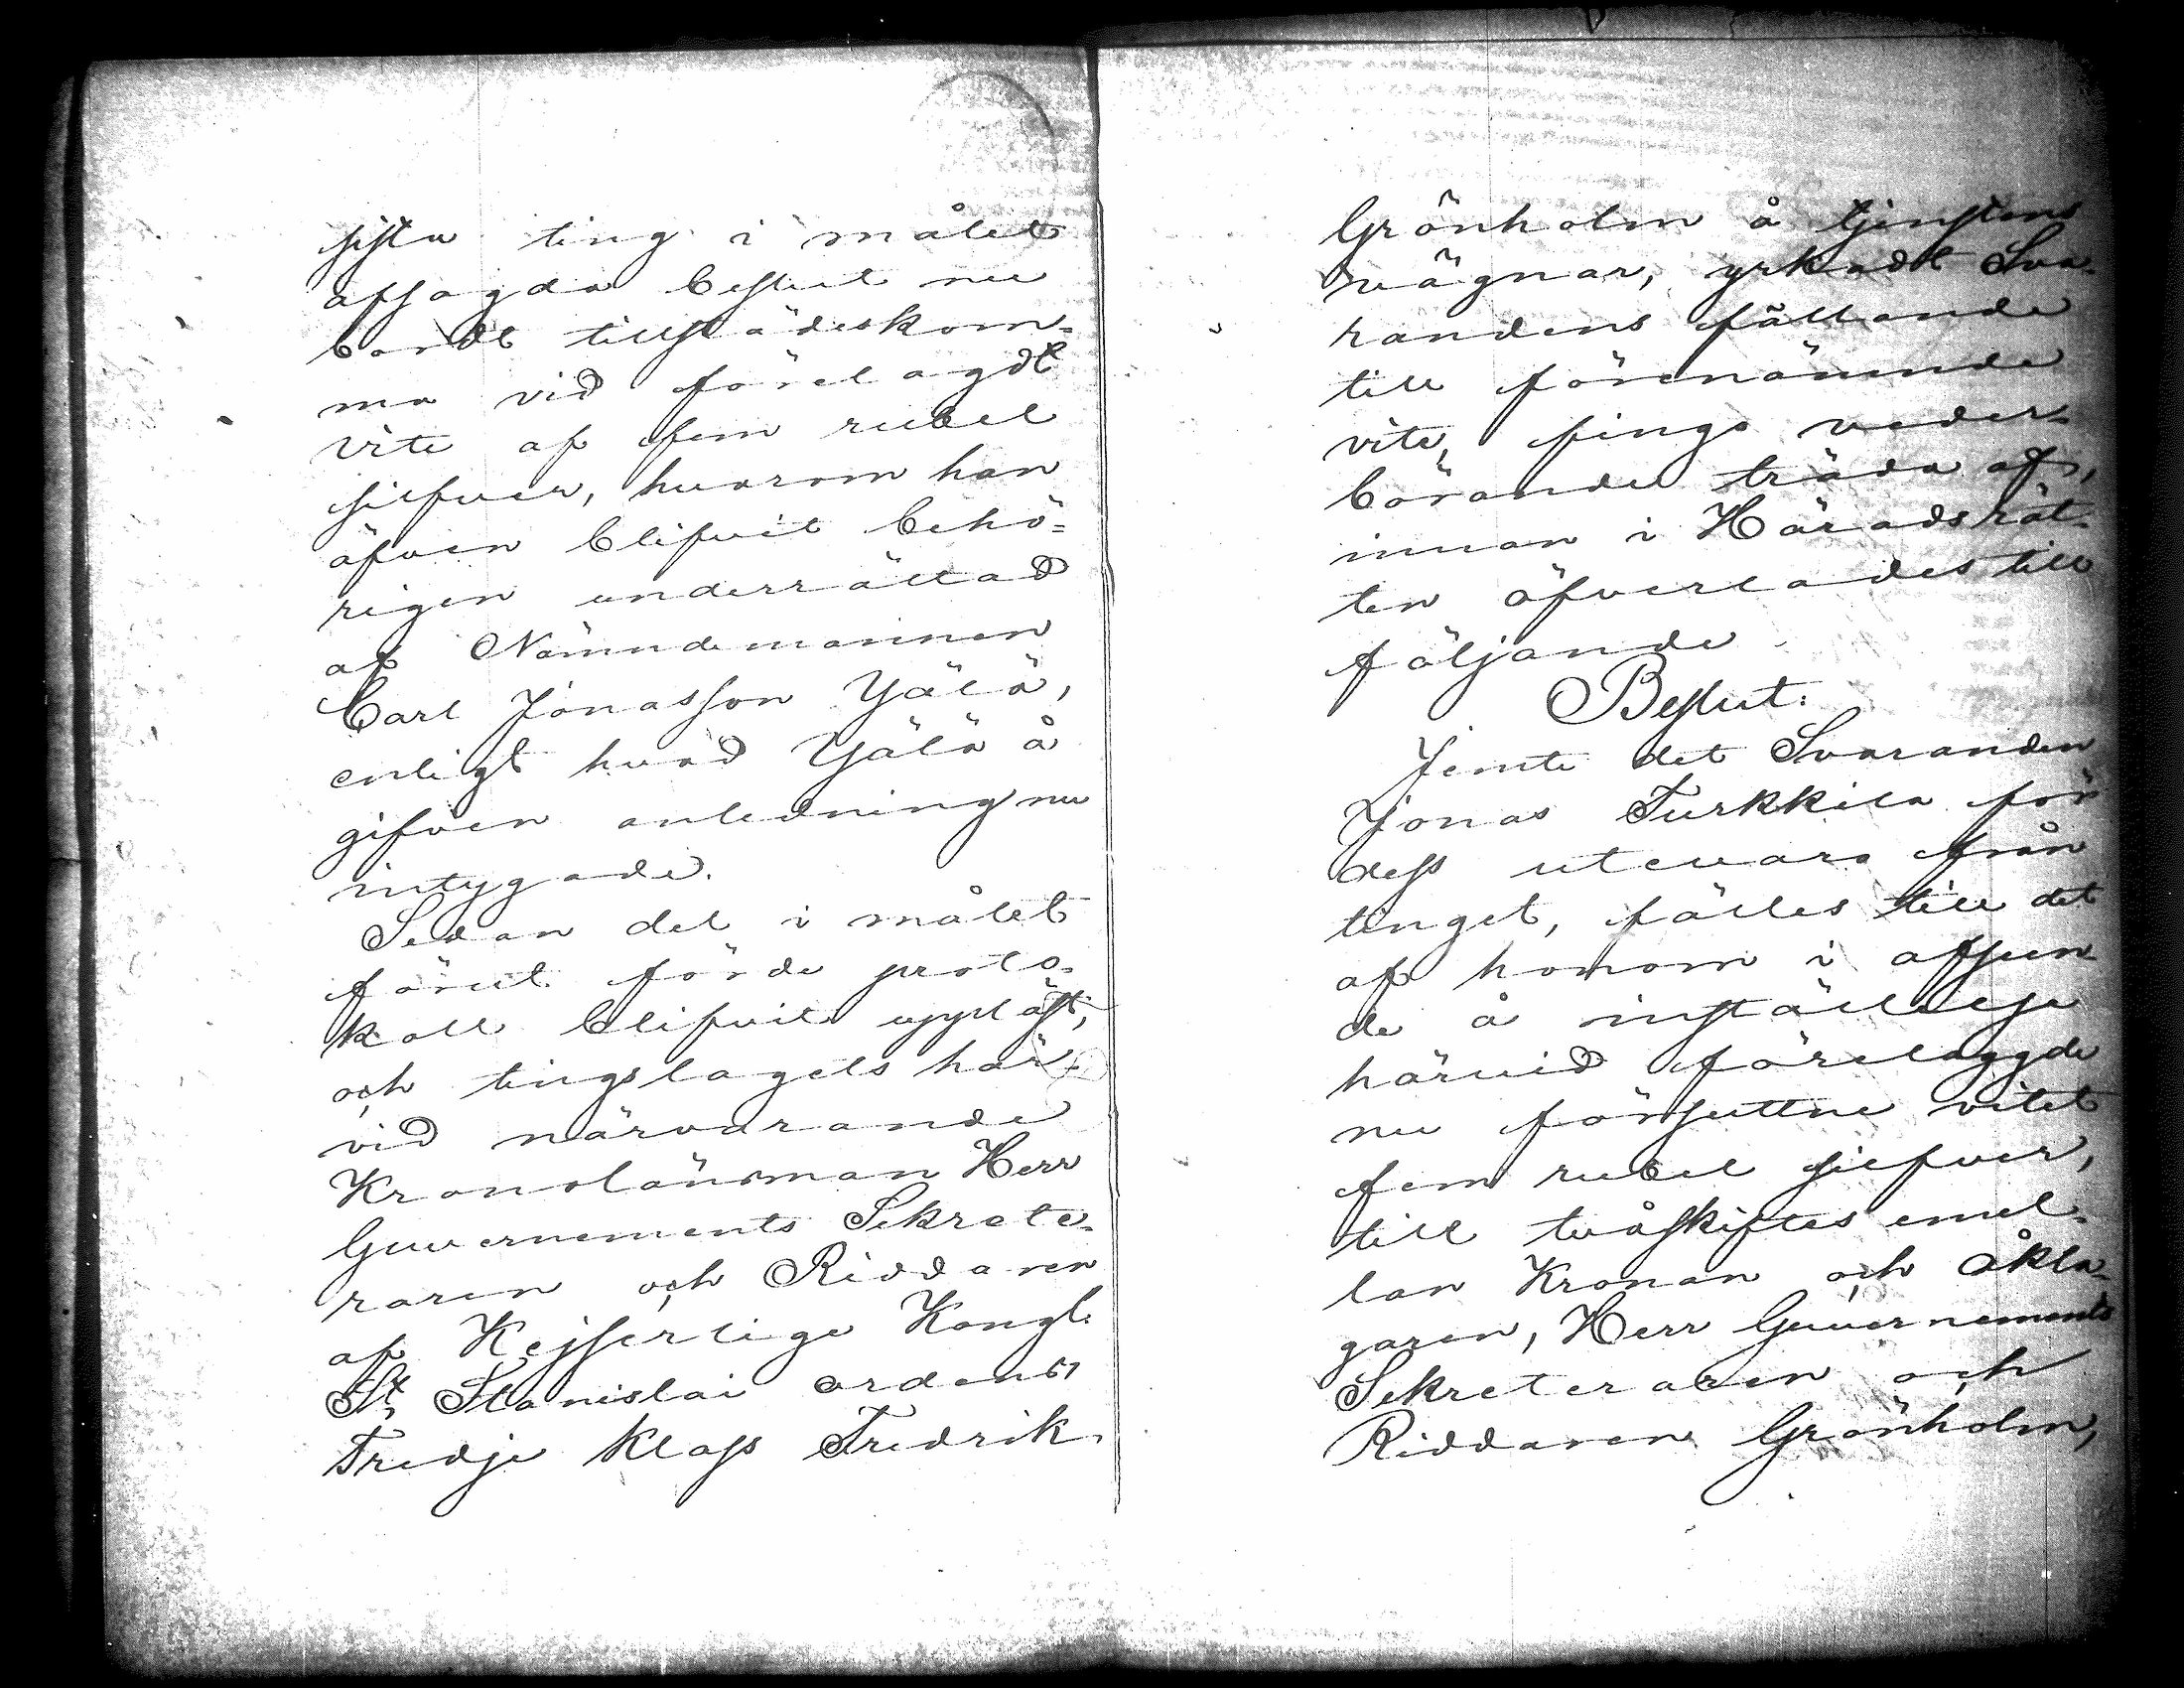 sista ting i målet
afsagda beslut nu
bordt tillstädeskom-
ma vid förelagdt
vite af fem rubel
silfver, hvarom han
äfven blifvit behö-
rigen underrättad
af Nämndemannen
Carl Jonasson Yälä,
enligt hvad Yälä å
gifven anledning nu
intygade.
Sedan det i målet
förut förde proto-
koll blifvit uppläst,
och tingslagets här-
vid närvarande
Kronolänsman Herr
Guvernements Sekrete-
raren och Riddaren
af Kejserliga Kongl.
St. Stanislai ordens
Tredje Klass Fredrik
Grönholm å tjenstens
vägnar, yrkadt Sva-
randens fällande
till förenämnde
vite, fingo veder-
börande träda af,
innan i Häradsrät-
ten öfverlades till
följande
Beslut:
Jemte det Svaranden
Jonas Turkkila för
dess utevaro från
tinget, fälles till det
af honom i afseen-
de å inställelse
härvid förelaggde
nu försuttne vitet
fem rubel silfver,
till tvåskiftes emel-
lan Kronan och åkla-
garen, Herr Guvernements
Sekreteraren och
Riddaren Grönholm,